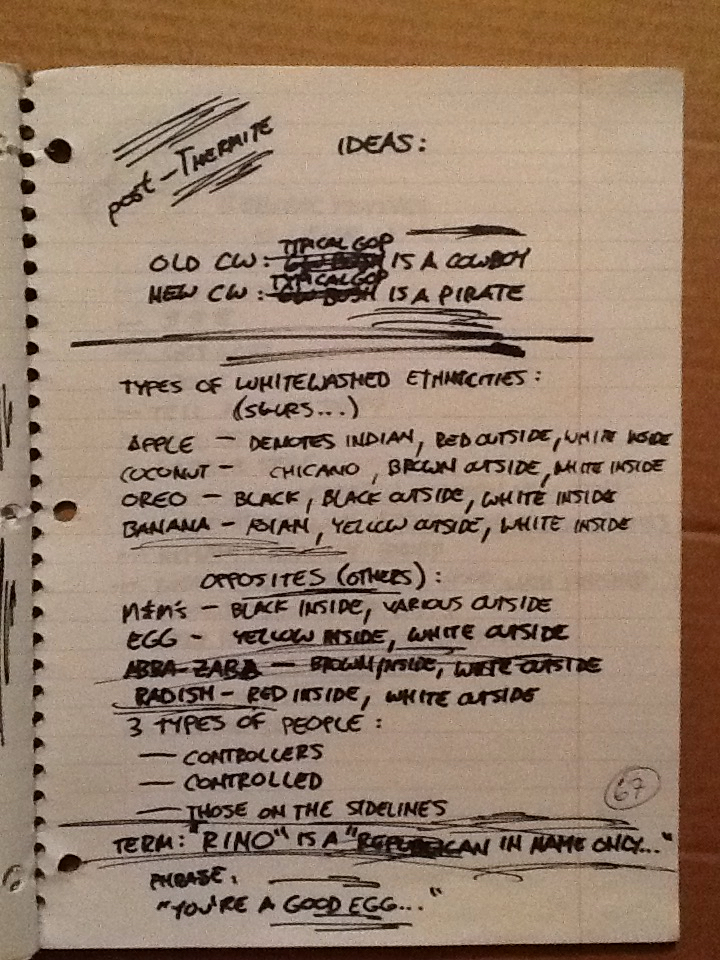 post-THERMITE
IDEAS:
TYPICAL GOP
OLD CW: GW BUSH IS A COWBOY
TYPICAL GOP
NEW CW: GW BUSH IS A PIRATE
TYPES OF WHITEWASHED ETHNICITIES:
(SLURS...)
APPLE — DENOTES INDIAN, RED OUTSIDE, WHITE INSIDE
COCONUT — CHICANO, BROWN OUTSIDE, WHITE INSIDE
OREO — BLACK, BLACK OUTSIDE, WHITE INSIDE
BANANA — ASIAN, YELLOW OUTSIDE, WHITE INSIDE
OPPOSITES (OTHERS):
M&M's — BLACK INSIDE, VARIOUS OUTSIDE
EGG — YELLOW INSIDE, WHITE OUTSIDE
ABBA-ZABA — BROWN INSIDE, WHITE OUTSIDE
RADISH — RED INSIDE, WHITE OUTSIDE
3 TYPES OF PEOPLE:
— CONTROLLERS
— CONTROLLED
— THOSE ON THE SIDELINES
67
TERM: "RINO" IS A "REPUBLICAN IN NAME ONLY..."
PHRASE:
"YOU'RE A GOOD EGG..."